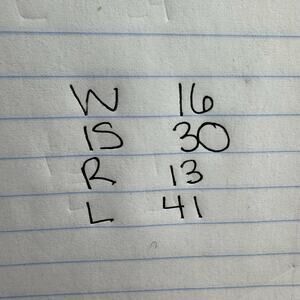 W 16
IS 30
R 13
L 41